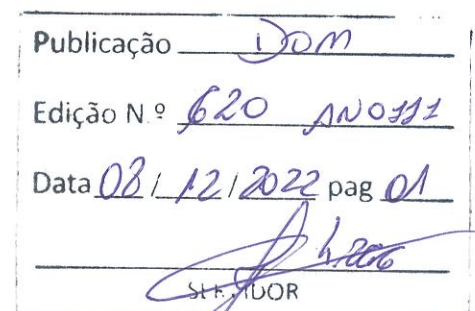 Publicação DOM
Edição N.º 620 ANO III
Data 08/12/2022 pag 01
SERVIDOR